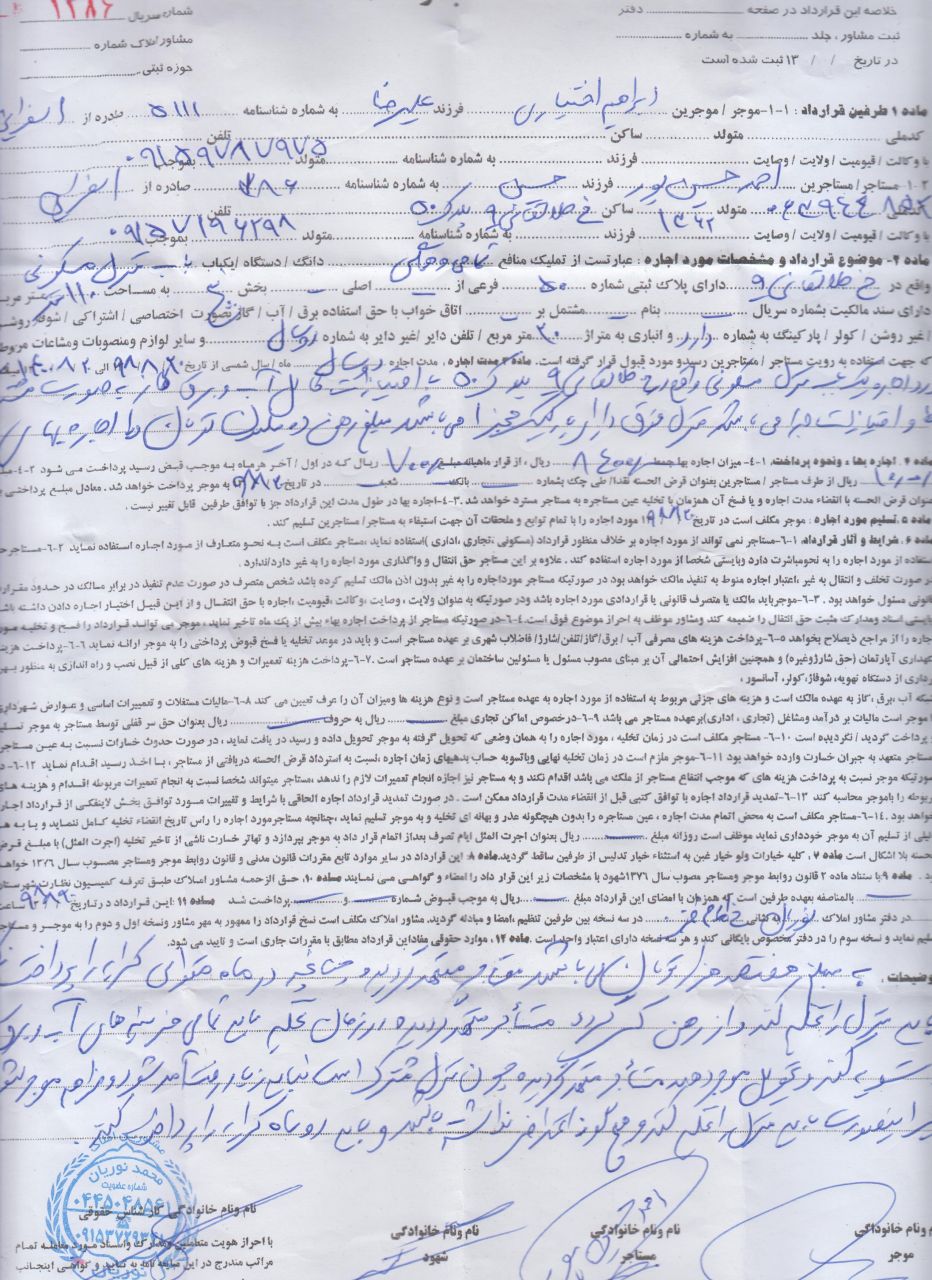 شماره سریال ۱۲۸۶
خلاصه این قرارداد در صفحه ........ دفتر
ثبت مشاور ، جلد ........ به شماره ........
مشاور املاک شماره ........
در تاریخ / / ۱۳ ثبت شده است
حوزه ثبتی ........
ماده ۱ طرفین قرارداد : ۱-۱-موجر / موجرین ابراهیم اختیاری فرزند علیرضا به شماره شناسنامه ۵۱۱۱ صادره از
کدملی متولد ساکن تلفن ۰۹۱۵۹۷۸۷۹۷۵
با وکالت / قیومیت / ولایت / وصایت فرزند به شماره شناسنامه متولد بموجب
۱-۲ مستاجر / مستاجرین احمد حسین پور فرزند حسین به شماره شناسنامه ۳۸۶ صادره از
کدملی متولد ۱۳۶۲ ساکن خ طالقانی ۹ پلاک ۵۰ تلفن ۰۹۱۵۷۱۹۶۲۹۸
با وکالت / قیومیت / ولایت / وصایت فرزند به شماره شناسنامه متولد بموجب
ماده ۲- موضوع قرارداد و مشخصات مورد اجاره : عبارتست از تملیک منافع دانگ / دستگاه / یکباب منزل مسکونی
واقع در خ طالقانی ۹ دارای پلاک ثبتی شماره ۵۰ فرعی از اصلی بخش به مساحت ۱۱۰ متر مربع
دارای سند مالکیت بشماره سریال بنام مشتمل بر اتاق خواب با حق استفاده برق / آب / گاز بصورت اختصاصی / اشتراکی / شوفاژ روشن
/ غیر روشن / کولر / پارکینگ به شماره دارد و انباری به متراژ ۳۰ متر مربع / تلفن دایر /غیر دایر به شماره و سایر لوازم ومنصوبات ومشاعات مربوطه
که جهت استفاده به رویت مستاجر / مستاجرین رسیدو مورد قبول قرار گرفته است. ماده ۳ مدت اجاره . مدت اجاره ماه / سال شمسی از تاریخ ۹۸/۸/۲۰ الی
منزل مسکونی واقع در خ طالقانی ۹ پلاک ۵۰ با امتیازات کامل آب و برق گاز به صورت
و امتیازات می باشد منزل فوق دارای پارکینگ مجزا می باشد مبلغ رهن ده میلیون تومان
ماده ۴ . اجاره بها ، ونحوه پرداخت. ۴-۱- میزان اجاره بها جمعا ریال ، از قرار ماهیانه مبلغ ریال که در اول / آخر هرماه به موجب قبض رسید پرداخت می شود ۴-۲-
ریال از طرف مستاجر / مستاجرین بعنوان قرض الحسنه نقدا/ طی چک بشماره بانک شعبه در تاریخ به موجر پرداخت خواهد شد. معادل مبلغ پرداختی
عنوان قرض الحسنه با انقضاء مدت اجاره و یا فسخ آن همزمان با تخلیه عین مستاجره به مستاجر مسترد خواهد شد .۴-۳-اجاره بها در طول مدت این قرارداد جز با توافق طرفین قابل تغییر نیست .
ماده ۵. تسلیم مورد اجاره : موجر مکلف است در تاریخ مورد اجاره را با تمام توابع و ملحقات آن جهت استیفاء به مستاجر / مستاجرین تسلیم کند .
ماده ۶ . شرایط و آثار قرارداد. ۶-۱-مستاجر نمی تواند از مورد اجاره بر خلاف منظور قرارداد (مسکونی ،تجاری ،اداری )استفاده نماید ،مستاجر مکلف است به نحو متعارف از مورد اجاره استفاده نماید ۶-۲-مستاجر
استفاده از مورد اجاره را به نحومباشرت دارد وبایستی شخصا از مورد اجاره استفاده کند . علاوه بر این مستاجر حق انتقال و واگذاری مورد اجاره را به غیر دارد/ندارد .
در صورت تخلف و انتقال به غیر ،اعتبار اجاره منوط به تنفیذ مالک خواهد بود در صورتیکه مستاجر مورداجاره را به غیر بدون اذن مالک تسلیم کرده باشد شخص متصرف در صورت عدم تنفیذ در برابر مالک در حدود مقررات
قانونی مسئول خواهد بود . ۶-۳-موجرباید مالک یا متصرف قانونی یا قراردادی مورد اجاره باشد ودر صورتیکه به عنوان ولایت ، وصایت ،وکالت ،قیومیت، اجاره با حق انتقال و از این قبیل اختیار اجاره دادن داشته باشد
بایستی اسناد ومدارک مثبت حق انتقال را ضمیمه کند ومشاور موظف به احراز موضوع فوق است.۶-۴-در صورتیکه مستاجر از پرداخت اجاره بهاء بیش از یک ماه تاخیر نماید ، موجر می تواند قرارداد را فسخ و تخلیه مورد
اجاره را از مراجع ذیصلاح بخواهد ۶-۵-پرداخت هزینه های مصرفی آب / برق/گاز/تلفن/شارژ/ فاضلاب شهری بر عهده مستاجر است و باید در موعد تخلیه یا فسخ قبوض پرداختی را به موجر ارائه نماید ۶-۶-پرداخت هزینه
نگهداری آپارتمان (حق شارژوغیره) و همچنین افزایش احتمالی آن بر مبنای مصوب مسئول یا مسئولین ساختمان بر عهده مستاجر است .۶-۷-پرداخت هزینه تعمیرات و هزینه های کلی از قبیل نصب و راه اندازی به منظور بهره
برداری از دستگاه تهویه، شوفاژ،کولر، آسانسور ،
شبکه آب ،برق ،گاز به عهده مالک است و هزینه های جزئی مربوط به استفاده از مورد اجاره به عهده مستاجر است و نوع هزینه ها ومیزان آن را عرف تعیین می کند ۶-۸-مالیات مستغلات و تعمیرات اساسی و عوارض شهرداری
با موجر است مالیات بر درآمد ومشاغل (تجاری ، اداری)برعهده مستاجر می باشد ۶-۹-درخصوص اماکن تجاری مبلغ ریال به حروف ریال بعنوان حق سر قفلی توسط مستاجر به موجر تسلیم
و پرداخت گردید / نگردیده است ۶-۱۰- مستاجر مکلف است در زمان تخلیه ، مورد اجاره را به همان وضعی که تحویل گرفته به موجر تحویل داده و رسید در یافت نماید ، در صورت حدوث خسارات نسبت به عین مستاجره
مستاجر متعهد به جبران خسارت وارده خواهد بود ۶-۱۱-موجر ملزم است در زمان تخلیه نهایی وباتسویه حساب بدهیهای زمان اجاره ،نسبت به استرداد قرض الحسنه دریافتی از مستاجر ، با اخذ رسید اقدام نماید ۶-۱۲-
صورتیکه موجر نسبت به پرداخت هزینه های که موجب انتفاع مستاجر از ملک می باشد اقدام نکند و به مستاجر نیز اجازه انجام تعمیرات لازم را ندهد ،مستاجر میتواند شخصا نسبت به انجام تعمیرات مربوطه اقدام و هزینه های
مربوطه را باموجر محاسبه کند ۶-۱۳-تمدید قرارداد اجاره با توافق کتبی قبل از انقضاء مدت قرارداد ممکن است . در صورت تمدید قرارداد اجاره الحاقی با شرایط و تغییرات مورد توافق بخش لاینفکی از قرارداد اجاره
خواهد بود .۶-۱۴-مستاجر مکلف است به محض اتمام مدت اجاره ، عین مستاجره را بدون هیچگونه عذر و بهانه ای تخلیه و به موجر تسلیم نماید ،چنانچه مستاجرمورد اجاره را راس تاریخ انقضاء تخلیه کامل ننماید و یا به هر
دلیلی از تسلیم آن به موجر خودداری نماید موظف است روزانه مبلغ ریال بعنوان اجرت المثل ایام تصرف بعداز اتمام قرار داد به موجر بپردازد و تهاتر خسارت ناشی از تاخیر تخلیه (اجرت المثل) با مبلغ قرض
الحسنه بلا اشکال است ماده ۷ . کلیه خیارات ولو خیار غبن به استثناء خیار تدلیس از طرفین ساقط گردید.ماده ۸: این قرارداد در سایر موارد تابع مقررات قانون مدنی و قانون روابط موجر ومستاجر مصوب سال ۱۳۷۶ خواهد
بود . ماده ۹:با ستناد ماده ۲ قانون روابط موجر ومستاجر مصوب سال ۱۳۷۶شهود با مشخصات زیر این قرار داد را امضاء و گواهی می نمایند ماده ۱۰. حق الزحمه مشاور املاک طبق تعرفه کمیسیون نظارت شهرستان
بالمناصفه بعهده طرفین است که همزمان با امضای این قرارداد مبلغ ریال به موجب قبوض شماره و پرداخت شد ماده ۱۱: این قرارداد در تاریخ ساعت
در دفتر مشاور املاک به نشانی در سه نسخه بین طرفین تنظیم ،امضا و مبادله گردید. مشاور املاک مکلف است نسخ قرارداد را ممهور به مهر مشاور ونسخه اول و دوم را به موجر و مستاجر
تسلیم نماید و نسخه سوم را در دفتر مخصوص بایگانی کند و هر سه نسخه دارای اعتبار واحد است . ماده ۱۲ . موارد حقوقی مفاداین قرارداد مطابق با مقررات جاری است و تایید می شود.
توضیحات . به مبلغ هفتصد هزار تومان می باشد مستاجر متعهد گردیده چنانچه در ماه نتوانی کرایه را پرداخت
باید منزل را تخلیه کند و از رهن کسر گردد مستاجر متعهد گردیده در زمان تخلیه باید تمامی هزینه های آب و برق
تسویه کند و تحویل موجر دهد مستاجر متعهد گردیده چون منزل مشترک است نباید زیاد رفت آمد شود و مزاحم موجر شود
در اینصورت باید منزل را تخلیه کند و هیچگونه اعتراض نداشته باشد و باید دو ماه کرایه را پرداخت کند.
محمد نوریان
شماره عضویت
۰۴۴۵۰۴۸۵۶۱
نام ونام خانوادگی کارشناس حقوقی
با احراز هویت متعاملین ومدارک واسناد مورد معامله تمام
مراتب مندرج در این مبایعه نامه به تایید و گواهی اینجانب
نام ونام خانوادگی
شهود
نام ونام خانوادگی
مستاجر
نام ونام خانوادگی
موجر